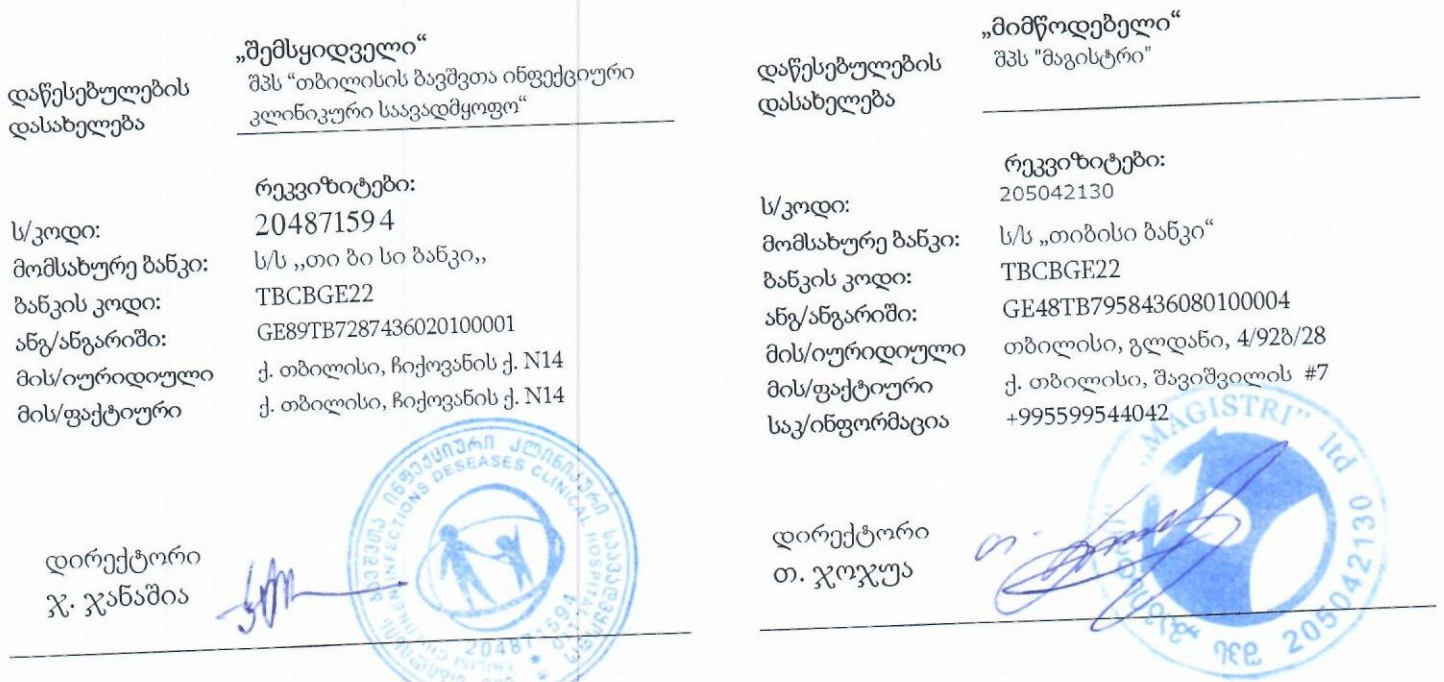 „შემსყიდველი“
დაწესებულების დასახელება
შპს “თბილისის ბავშვთა ინფექციური
კლინიკური საავადმყოფო“
რეკვიზიტები:
ს/კოდი: 204871594
მომსახურე ბანკი: ს/ს ,,თი ბი სი ბანკი,,
ბანკის კოდი: TBCBGE22
ანგ/ანგარიში: GE89TB7287436020100001
მის/იურიდიული ქ. თბილისი, ჩიქოვანის ქ. N14
მის/ფაქტიური ქ. თბილისი, ჩიქოვანის ქ. N14
დირექტორი
ჯ. ჯანაშია
ბავშვთა ინფექციური კლინიკური საავადმყოფო
INFECTIONS DESEASES CLINICAL HOSPITAL
204871594
„მიმწოდებელი“
დაწესებულების დასახელება
შპს "მაგისტრი"
რეკვიზიტები:
ს/კოდი: 205042130
მომსახურე ბანკი: ს/ს „თიბისი ბანკი“
ბანკის კოდი: TBCBGE22
ანგ/ანგარიში: GE48TB7958436080100004
მის/იურიდიული თბილისი, გლდანი, 4/92ბ/28
მის/ფაქტიური ქ. თბილისი, შავიშვილის #7
საკ/ინფორმაცია +995599544042
დირექტორი
თ. ჯოჯუა
"MAGISTRI" ltd 205042130 შპს